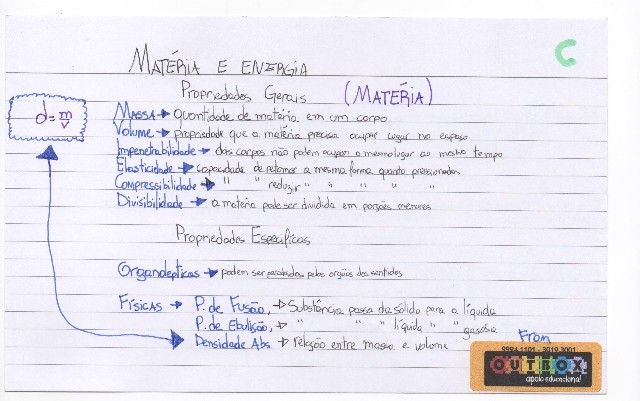 C
MATÉRIA E ENERGIA
Propriedades Gerais (MATÉRIA)
d = m/v
MASSA → quantidade de matéria em um corpo
Volume → propriedade que a matéria precisa ocupar lugar no espaço
Impenetrabilidade → dois corpos não podem ocupar o mesmo lugar ao mesmo tempo
Elasticidade → capacidade de retomar a mesma forma quanto pressionados
Compressibilidade → " " reduzir " " " "
Divisibilidade → a matéria pode ser dividida em porções menores
Propriedades Específicas
Organolépticas → podem ser percebidos pelos orgãos dos sentidos
FÍSICAS → P. de Fusão, → Substância passa de sólido para a líquida
P. de Ebulição, → " " " líquida " " gasosa
Densidade Abs → relação entre massa e volume
Fran
9984.1101 - 3919.3001
OUTBOX
apoio educacional